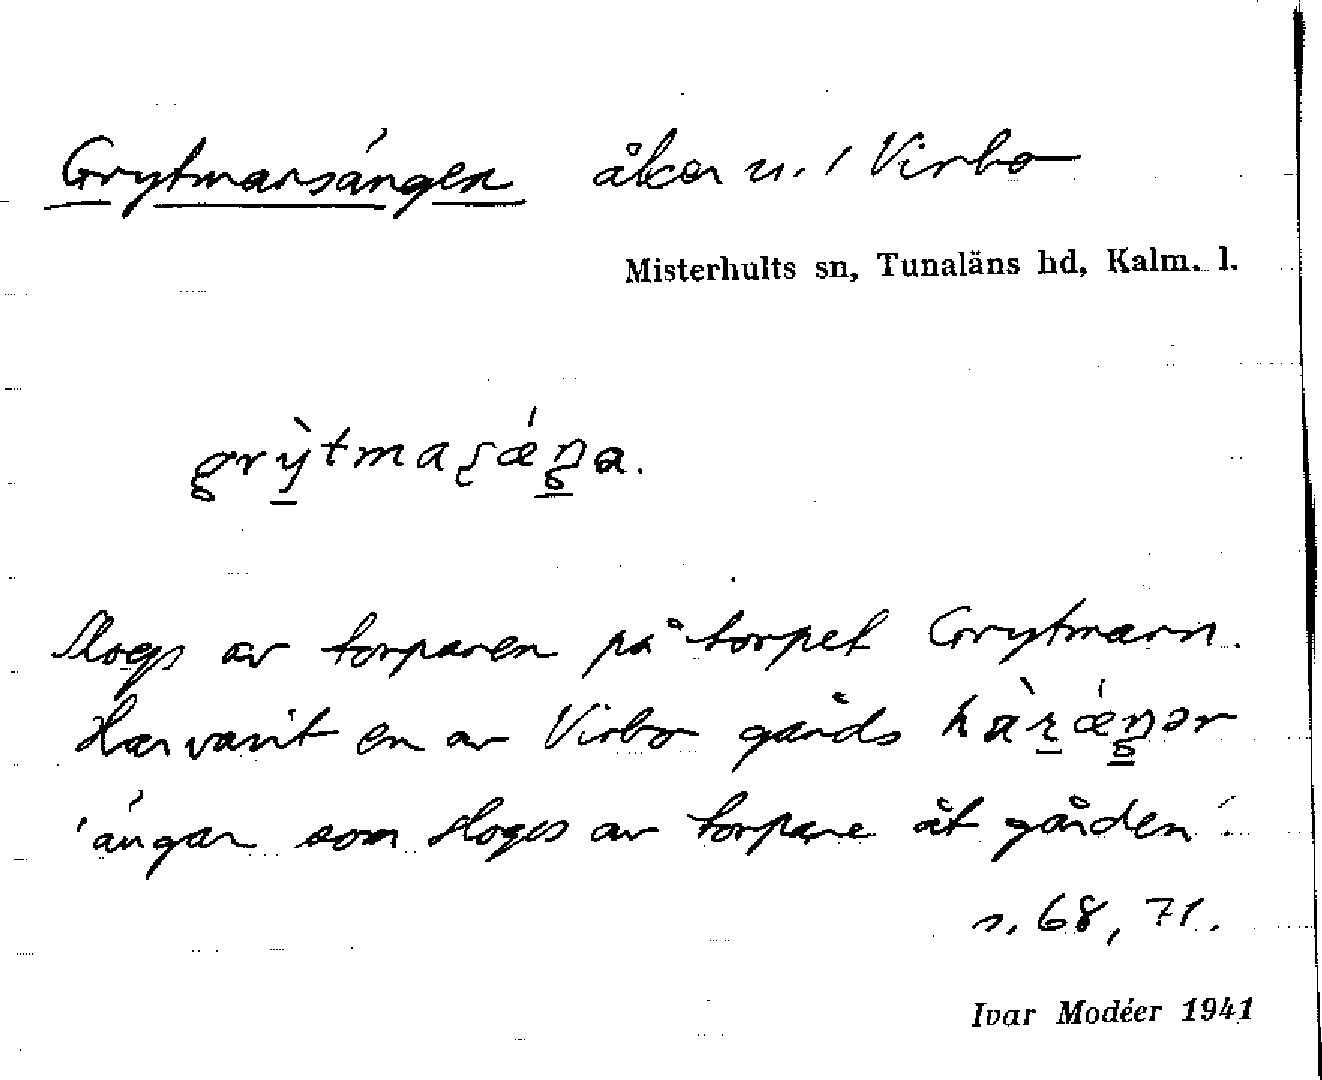 Grytmarsängen åker u. / Virbo
Misterhults sn, Tunaläns hd, Kalm. l.
Slogs av torparen på torpet Grytmarn.
Har varit en av Virbo gårds
'ängar som sloges av torpare åt gården'.
s. 68, 71.
Ivar Modéer 1941